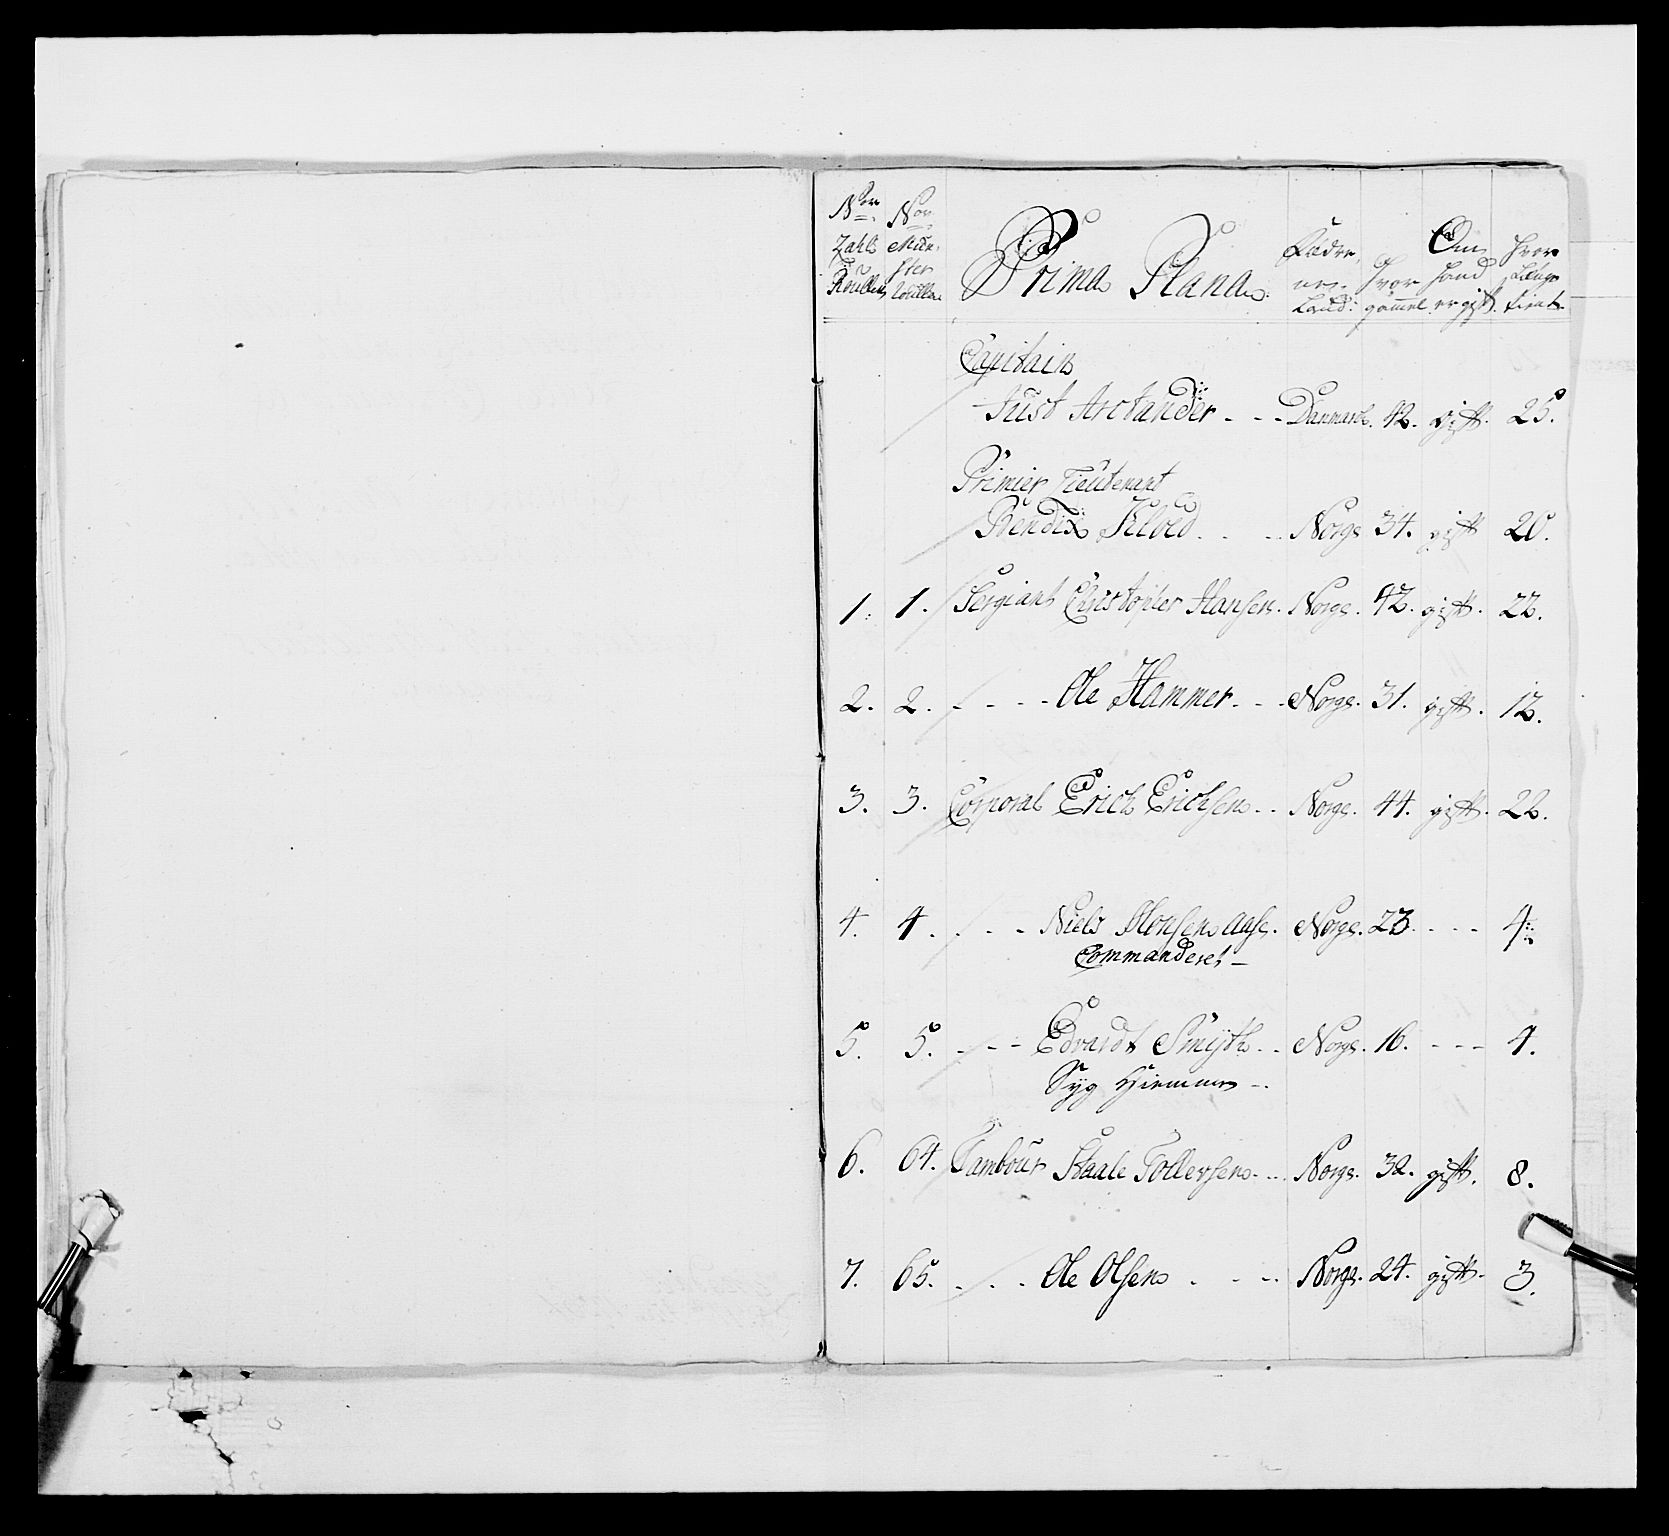 Nor Zahl Roullen | Nor Mün- ster Roullen | Prima Plana | Fædre- ne- Land: | Hvor gammel | Om hand er gift. | Hvor Længe tient
Capitain
Just Arctander - - - Danmark. 42. gift. 25.
Primier Lieutenant
Bendix Kloed . . . Norge 34. gift 20.
1. 1. Sergiant Christopher Hansen. Norge. 42. gift. 22.
2. 2. - - - - Ole Hammer - - - Norge. 31. gift. 12.
3. 3. Corporal Erich Erichsen - - Norge. 44. gift. 22.
4. 4. - - - Niels Monsen Aase. Norge. 23. - - - 4.
Commanderet -
5. 5. - - - Edvardt Smyth - - Norge. 16. - - - 4.
Syg Hiemme -
6. 64. Tambour Staale Tollevsen - - Norge. 32. gift. 8.
7. 65. - - - Ole Olsen - - - Norge. 24. gift. 3.